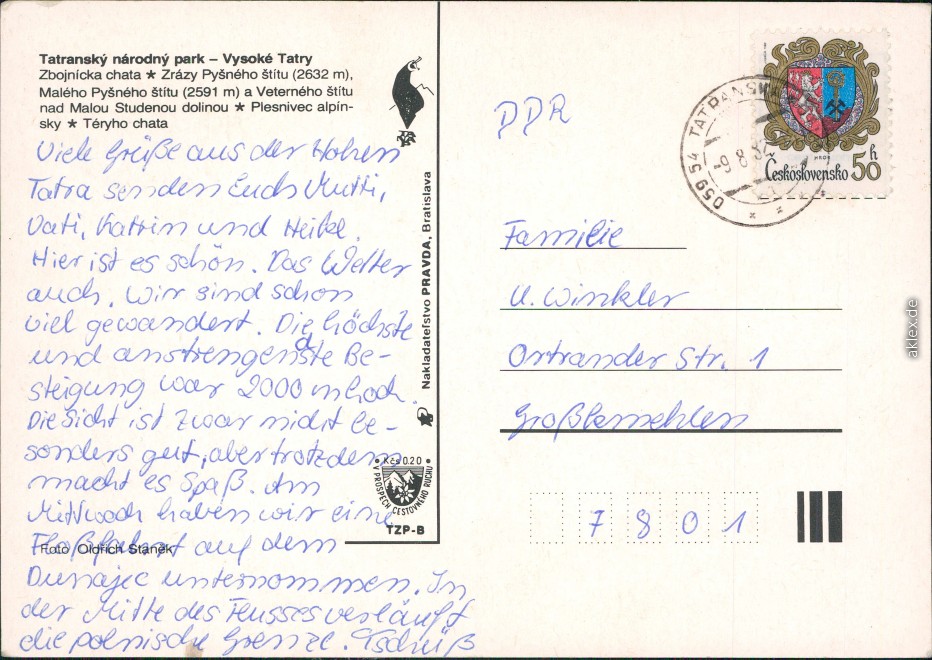 Tatranský národný park – Vysoké Tatry
Zbojnícka chata ★ Zrázy Pyšného štítu (2632 m),
Malého Pyšného štítu (2591 m) a Veterného štítu
nad Malou Studenou dolinou ★ Plesnivec alpín-
sky ★ Téryho chata
Viele Grüße aus der Hohen
Tatra senden Euch Mutti,
Vati, Katrin und Heike.
Hier ist es schön. Das Wetter
auch. Wir sind schon
viel gewandert. Die höchste
und anstrengendste Be-
steigung war 2000 m hoch.
Die Sicht ist zwar nicht be-
sonders gut, aber trotzdem
macht es Spaß. Am
Mittwoch haben wir eine
Floßfahrt auf dem
Dunajec unternommen. In
der Mitte des Flusses verläuft
die polnische Grenze. Tschüß
Foto Oldřich Staněk
Nakladateľstvo PRAVDA, Bratislava
Kčs 0.20
V PROSPECH CESTOVNÉHO RUCHU
TZP-B
DDR
059 54 TATRANSKÁ
-9.8.8
Československo 50 h
Familie
U. Winkler
Ortrander Str. 1
Großkmehlen
7801
aklex.de